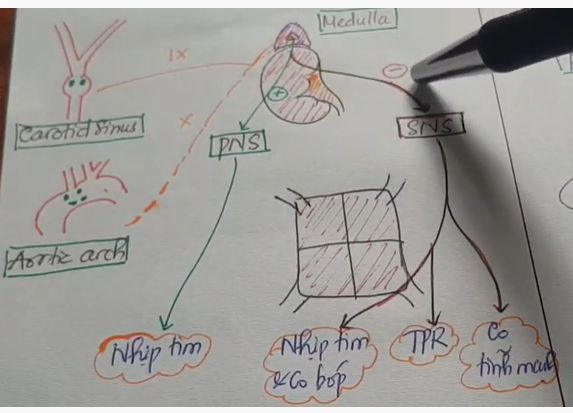 Medulla
IX
Carotid sinus
X
PNS
SNS
Aortic arch
Nhịp tim
Nhịp tim
& Co bóp
TPR
Co
tĩnh mạch
+
-